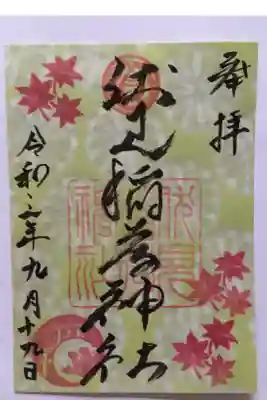 奉拝
伏見稲荷神社
令和三年九月十九日